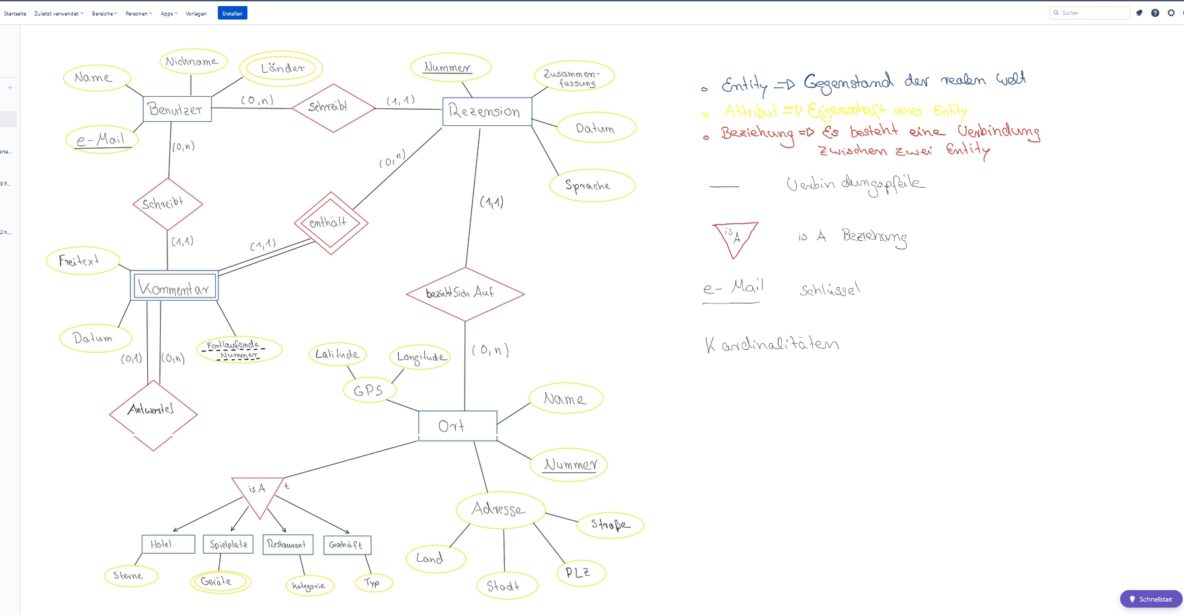 Startseite Zuletzt verwendet Bereiche Personen Apps Vorlagen Erstellen
Suchen
Name
Nickname
Länder
Benutzer
e-Mail
(0,n)
Schreibt
(1,1)
Nummer
Zusammen-
fassung
Rezension
Datum
Sprache
(0,n)
Schreibt
(1,1)
(0,n)
enthält
(1,1)
(1,1)
Freitext
Kommentar
Datum
Fortlaufende
Nummer
(0,1)
(0,n)
Antwortet
bezieht Sich Auf
(0,n)
Latitude
Longitude
GPS
Ort
Name
Nummer
Adresse
Straße
Land
Stadt
PLZ
is A
t
Hotel
Spielplatz
Restaurant
Geschäft
Sterne
Geräte
Kategorie
Typ
Entity => Gegenstand der realen Welt
Attribut => Eigenschaft eines Entity
Beziehung => Es besteht eine Verbindung
zwischen zwei Entity
Verbindungspfeile
is A
is A Beziehung
e-Mail
Schlüssel
Kardinalitäten
Schnellstart